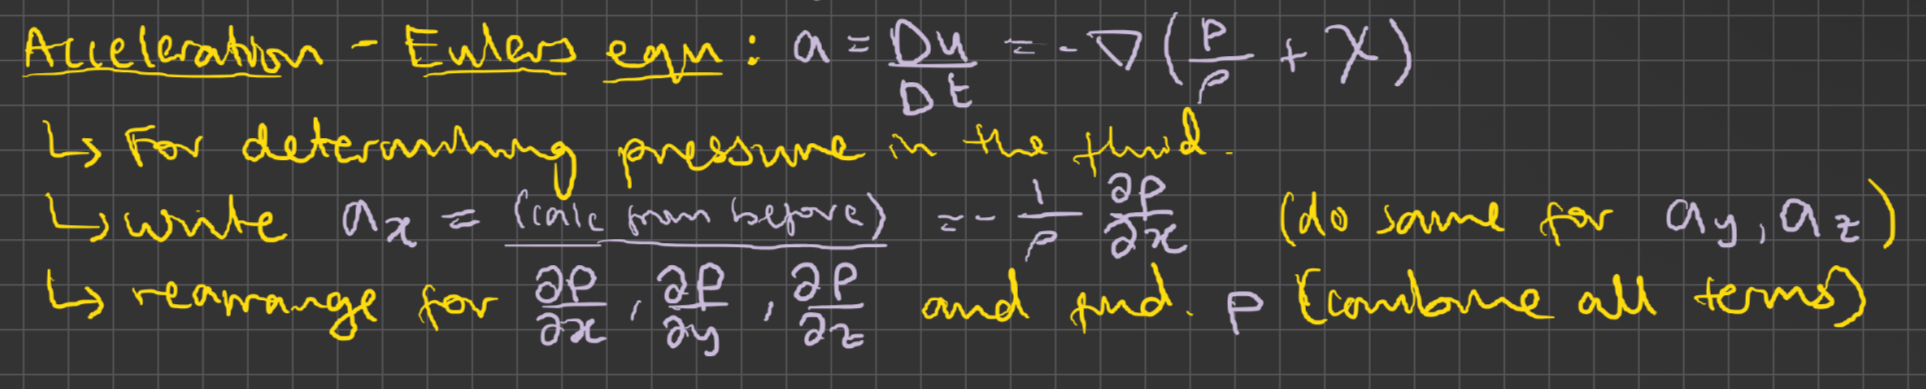 Acceleration - Eulers eqn: a = Du/Dt = -∇(p/ρ + χ)
↳ For determining pressure in the fluid.
↳ write aₓ = (calc from before) = - 1/ρ ∂p/∂x (do same for a_y, a_z)
↳ rearrange for ∂p/∂x, ∂p/∂y, ∂p/∂z and find. p (combine all terms)